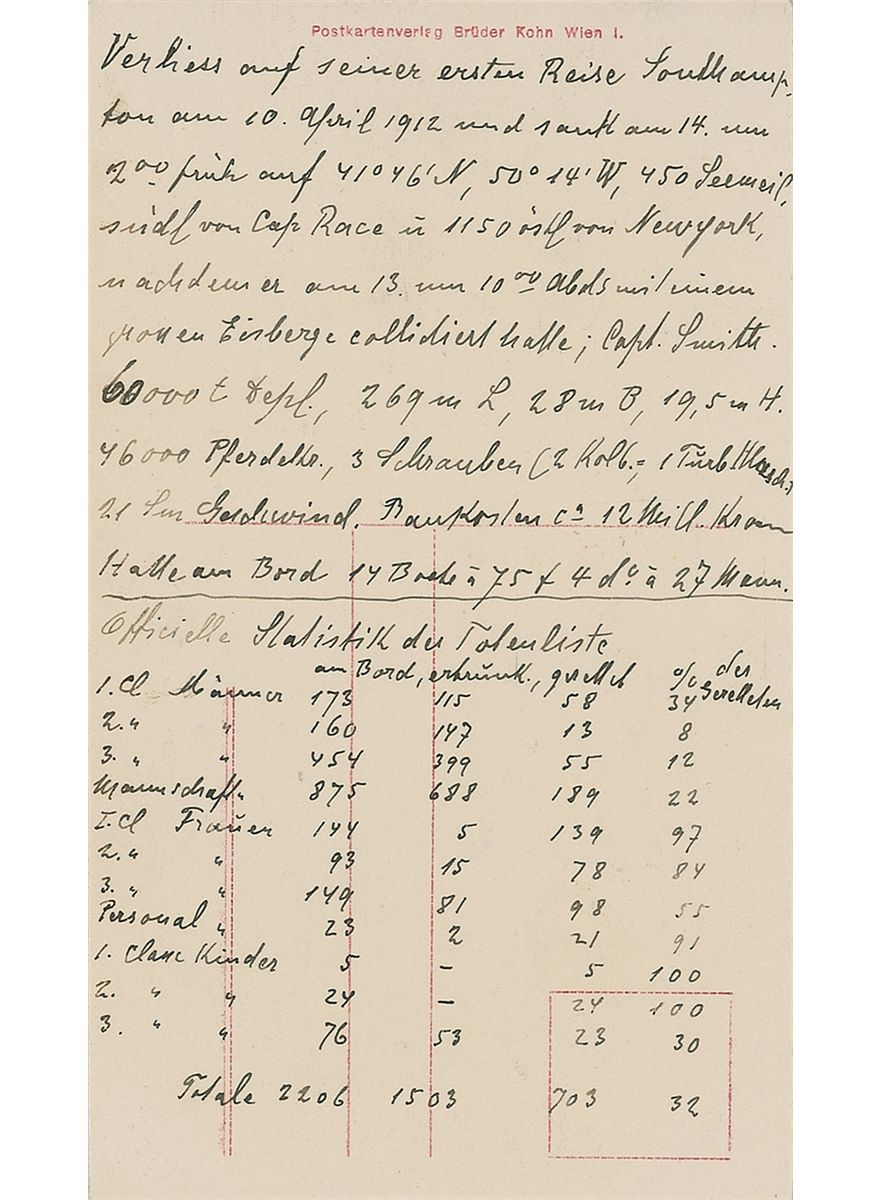 Postkartenverlag Brüder Kohn Wien I.
Verliess auf seiner ersten Reise Southamp,
ton am 10. April 1912 und sank am 14. um
2 00 früh auf 41° 46' N, 50° 14' W, 450 Seemeil,
südl von Cap Race u 1150 östl von Newyork,
nachdem er am 13. um 10 00 Abds mit einem
grossen Eisberge collidiert hatte; Capt. Smith.
60000 t Depl., 269 m L, 28 m B, 19,5 m H.
46000 Pferdekr., 3 Schrauben (2 Kolb.= 1 Turb Masch.)
21 Sm Geschwind. Baukosten ca 12 Mill. Kronen
Hatte am Bord 14 Boote à 75 + 4 do à 27 Mann.
Officielle Statistik der Totenliste
am Bord, ertrunk., gerettet % der Geretteten
1. Cl Männer 173 115 58 34
2. " " 160 147 13 8
3. " " 454 399 55 12
Mannschaft " 875 688 189 22
I. Cl Frauen 144 5 139 97
2. " " 93 15 78 84
3. " " 149 81 98 55
Personal " 23 2 21 91
1. Classe Kinder 5 – 5 100
2. " " 24 – 24 100
3. " " 76 53 23 30
Totale 2206 1503 703 32